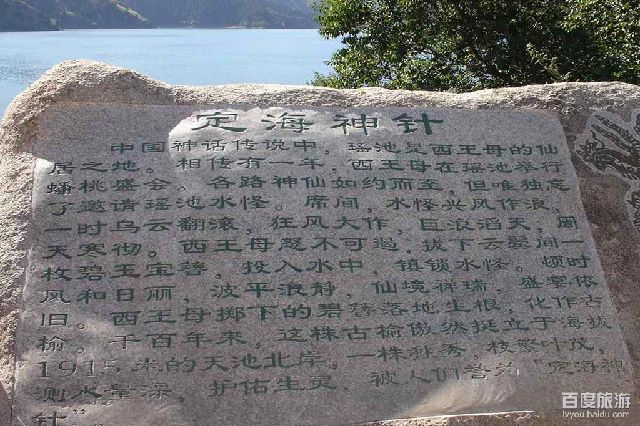 定海神针
中国神话传说中，瑶池是西王母的仙
居之地。相传有一年，西王母在瑶池举行
蟠桃盛会，各路神仙如约而至，但唯独忘
了邀请瑶池水怪。席间，水怪兴风作浪，
一时乌云翻滚，狂风大作，巨浪滔天，周
天寒彻。西王母怒不可遏，拔下云鬓间一
枚碧玉宝簪，投入水中，镇锁水怪。顿时
风和日丽，波平浪静，仙境祥瑞，盛宴依
旧。西王母掷下的碧簪落地生根，化作古
榆。千百年来，这株古榆傲然挺立于海拔
1915米的天池北岸。一株独秀，枝繁叶茂，
测水量深，护佑生灵，被人们誉为“定海神
针”。
百度旅游
lvyou.baidu.com